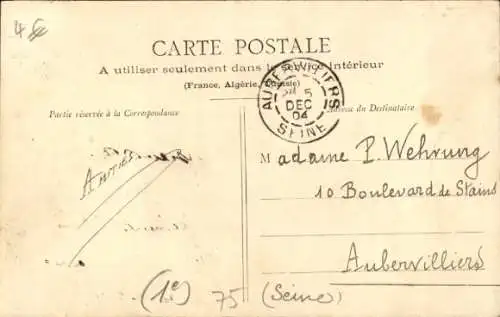 4€
CARTE POSTALE
A utiliser seulement dans le service intérieur
(France, Algérie, Tunisie)
AUBERVILLIERS
5
DEC
04
SEINE
Partie réservée à la Correspondance
du Destinataire
Madame P. Wehrung
10 Boulevard de Stains
Aubervilliers
(Seine)
(1e)
75